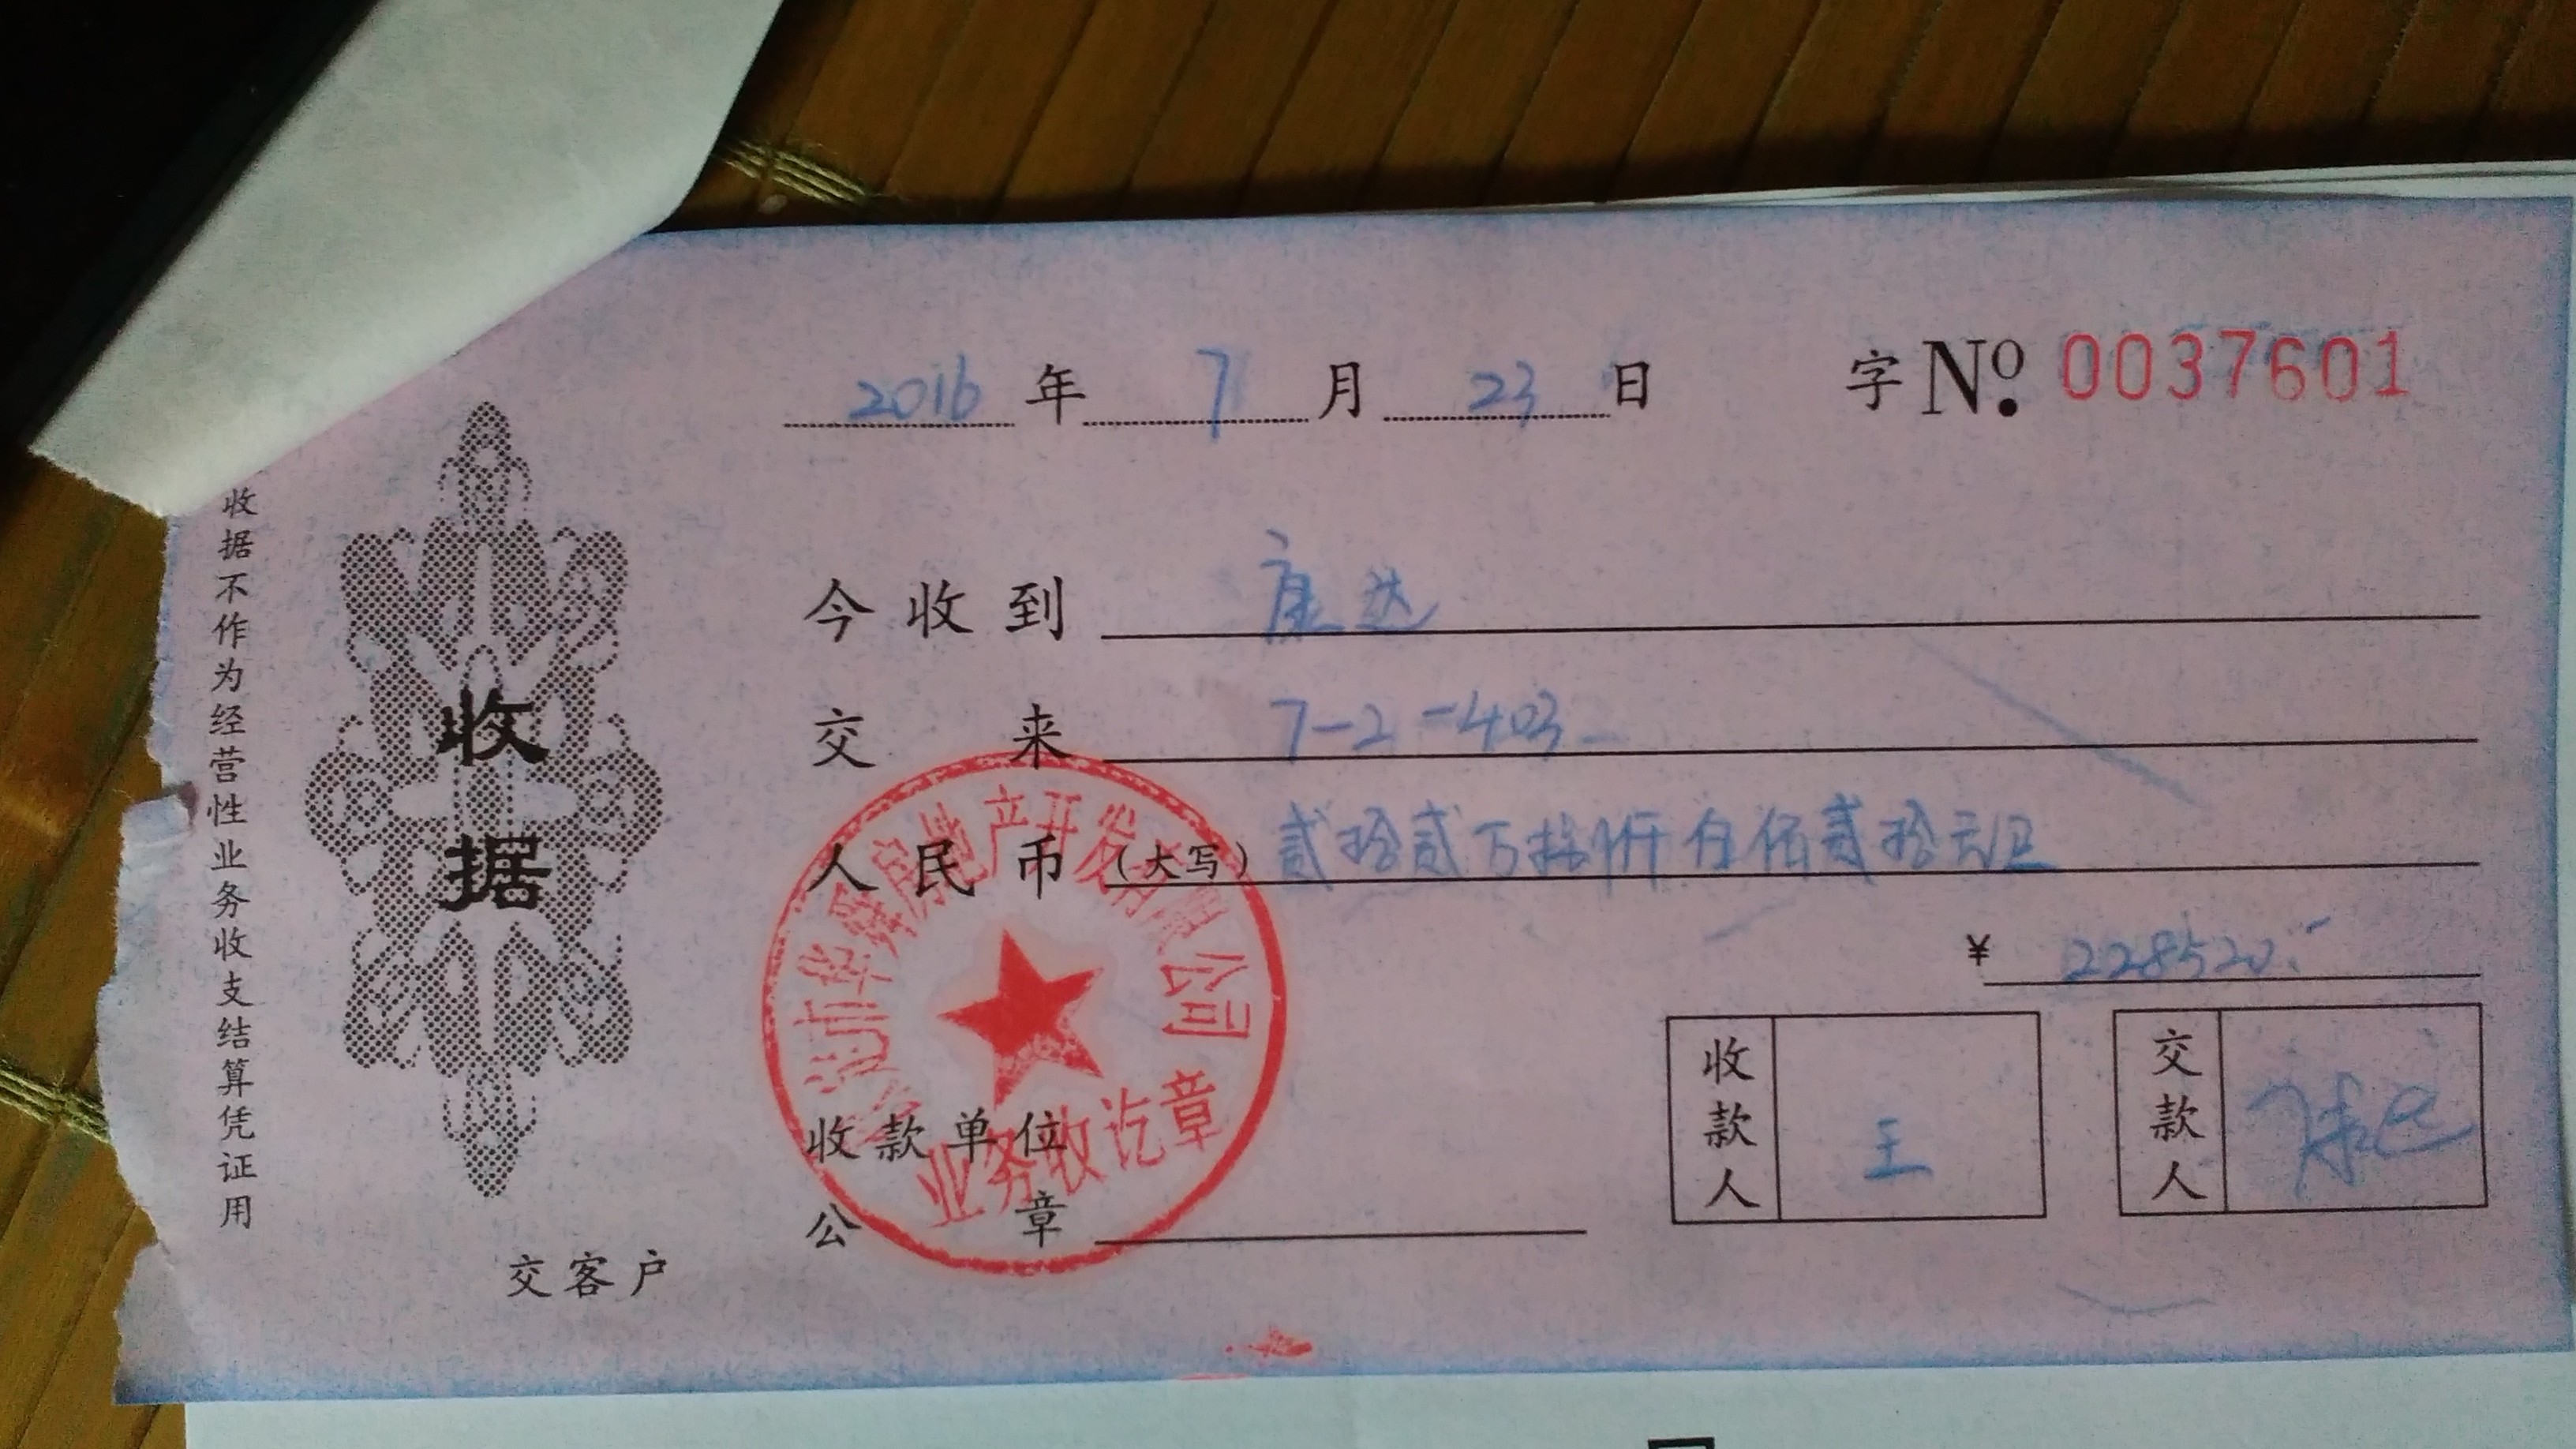 2016 年 7 月 23 日 字 Nº 0037601
收据不作为经营性业务收支结算凭证用
收据
今收到 康达
交来 7-2-403
人民币（大写）贰拾贰万捌仟伍佰贰拾元正
¥ 228520.-
房地产开发有限公司
业务收讫章
收款单位
公章
收款人 王
交款人
交客户